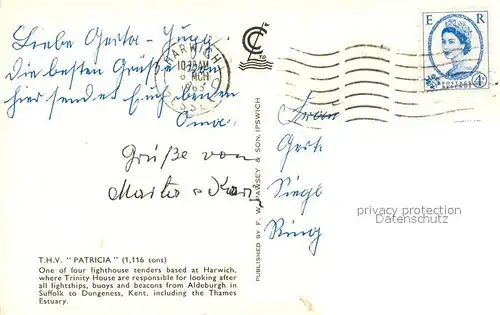 Liebe Gerta-Hugo.
Die besten Grüße von
hier sendet Euch
Oma.
Grüße von
HARWICH
MCH
1965
ESSEX
C
LTD
E R
POSTAGE
4D
Frau
Gert
Siegl
Ring
privacy protection
Datenschutz
PUBLISHED BY F. W. PAWSEY & SON, IPSWICH
T.H.V. "PATRICIA" (1,116 tons)
One of four lighthouse tenders based at Harwich,
where Trinity House are responsible for looking after
all lightships, buoys and beacons from Aldeburgh in
Suffolk to Dungeness, Kent, including the Thames
Estuary.